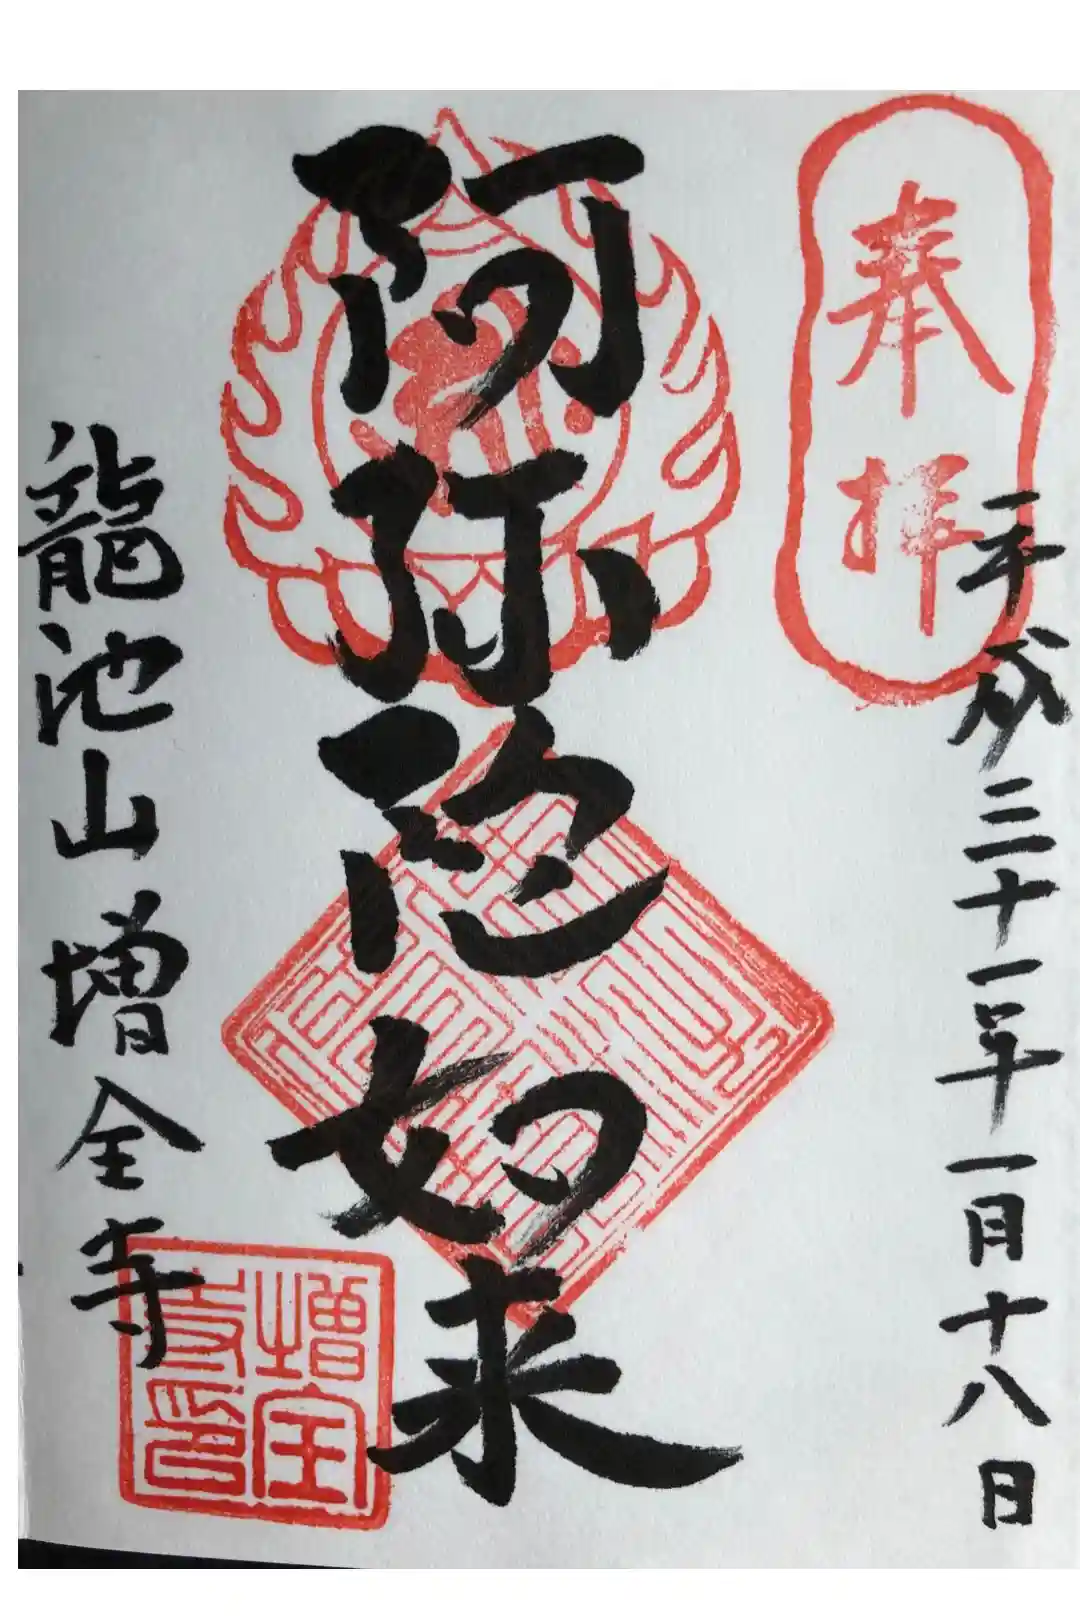 奉拝
平成三十一年一月十八日
阿弥陀如来
龍池山増全寺
増全寺印